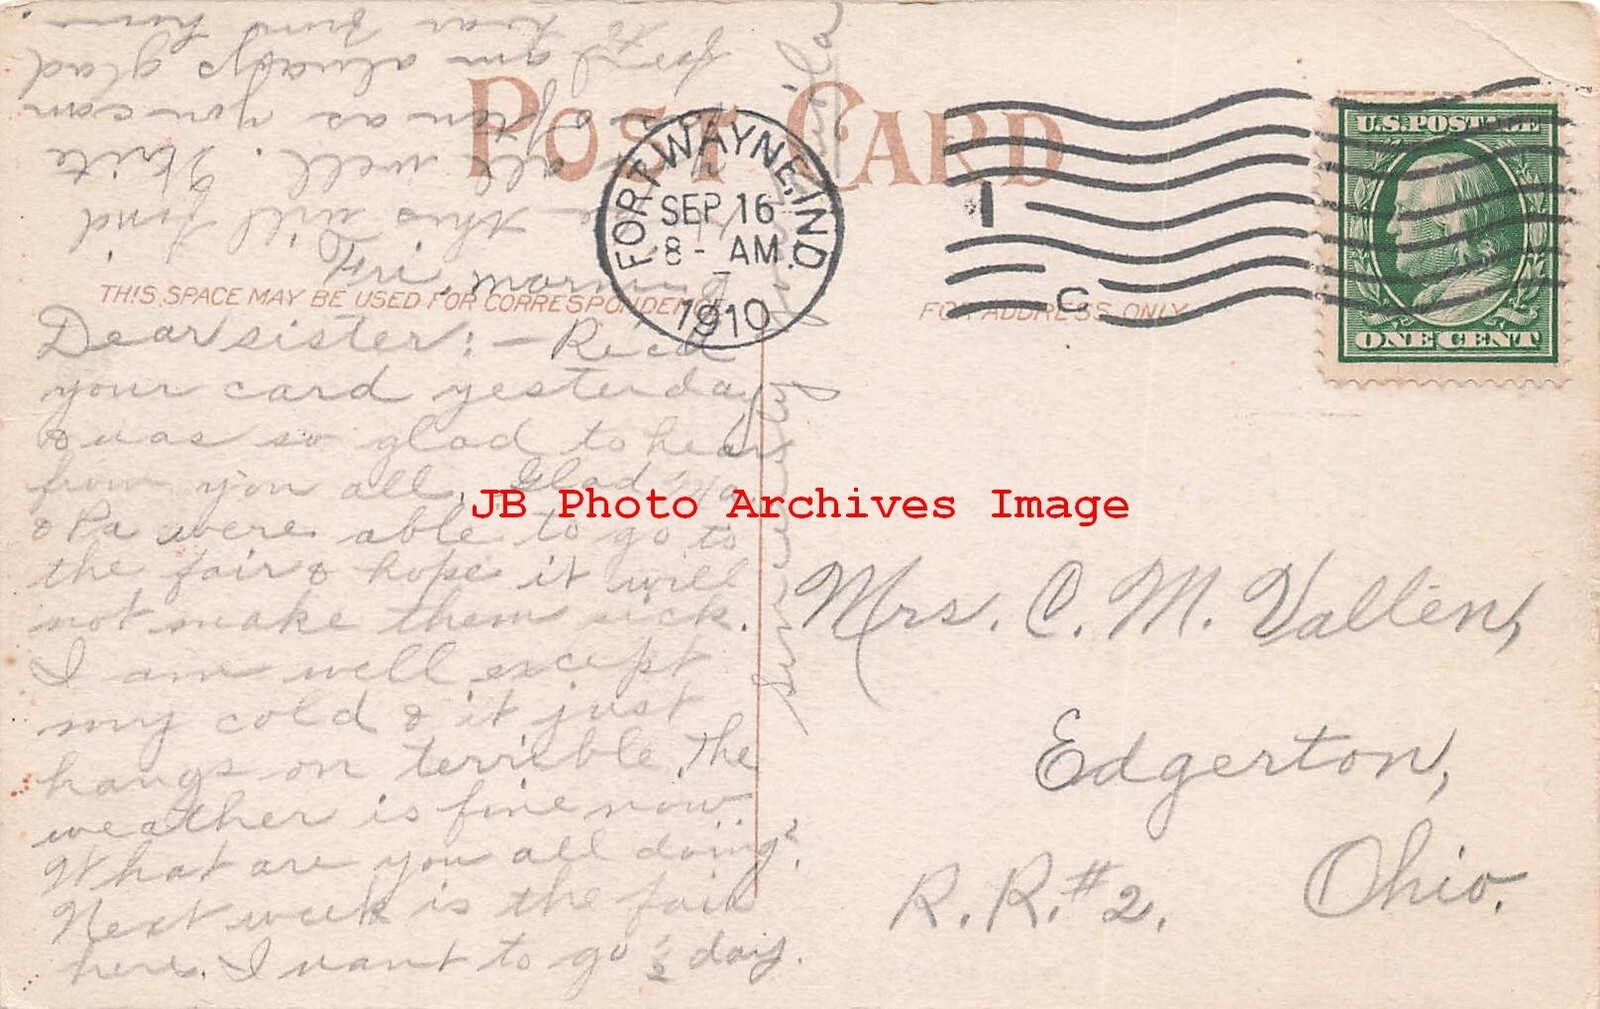 POST CARD
FORT WAYNE, IND.
SEP 16
8 - AM
1910
1
C
U.S. POSTAGE
ONE CENT
THIS SPACE MAY BE USED FOR CORRESPONDENCE
FOR ADDRESS ONLY
Fri. morning
Dear sister: - Rec'd
your card yesterday
& was so glad to hear
from you all. Glad Ma
& Pa were able to go to
the fair & hope it will
not make them sick.
I am well except
my cold & it just
hangs on terrible. The
weather is fine now.
What are you all doing?
Next week is the fair
here. I want to go ½ day.
this will find
all well. Write
as often as you can
for I am always glad
to hear from
JB Photo Archives Image
Mrs. C. M. Vallen,
Edgerton,
Ohio.
R. R. #2.